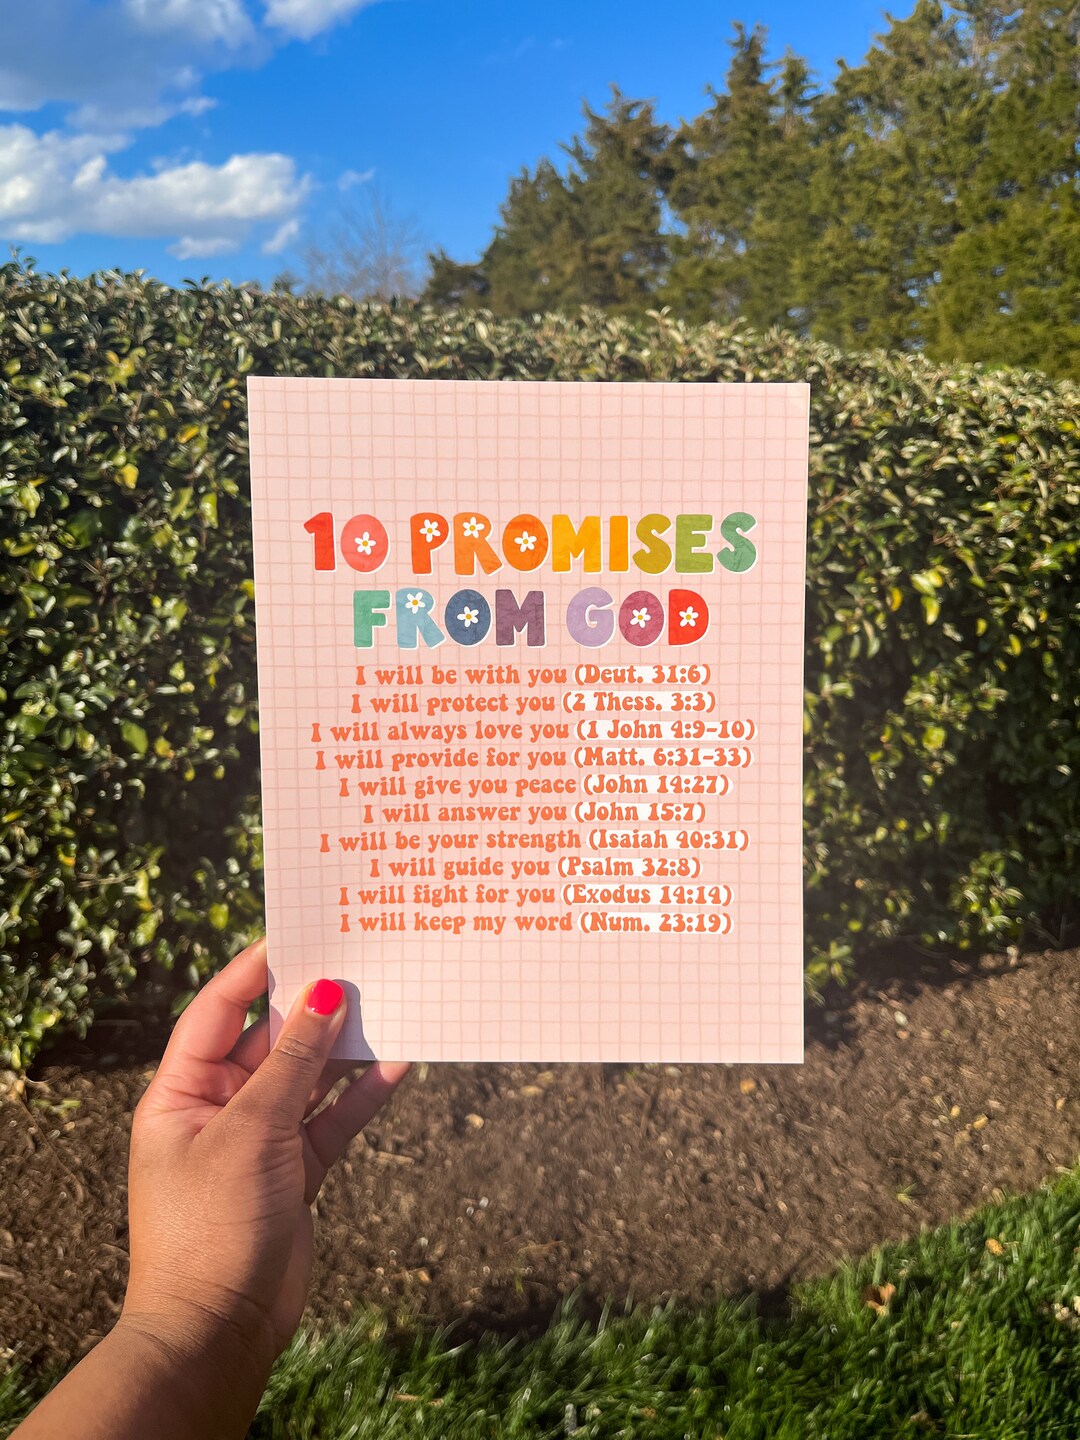 10 PROMISES
FROM GOD
I will be with you (Deut. 31:6)
I will protect you (2 Thess. 3:3)
I will always love you (1 John 4:9-10)
I will provide for you (Matt. 6:31-33)
I will give you peace (John 14:27)
I will answer you (John 15:7)
I will be your strength (Isaiah 40:31)
I will guide you (Psalm 32:8)
I will fight for you (Exodus 14:14)
I will keep my word (Num. 23:19)